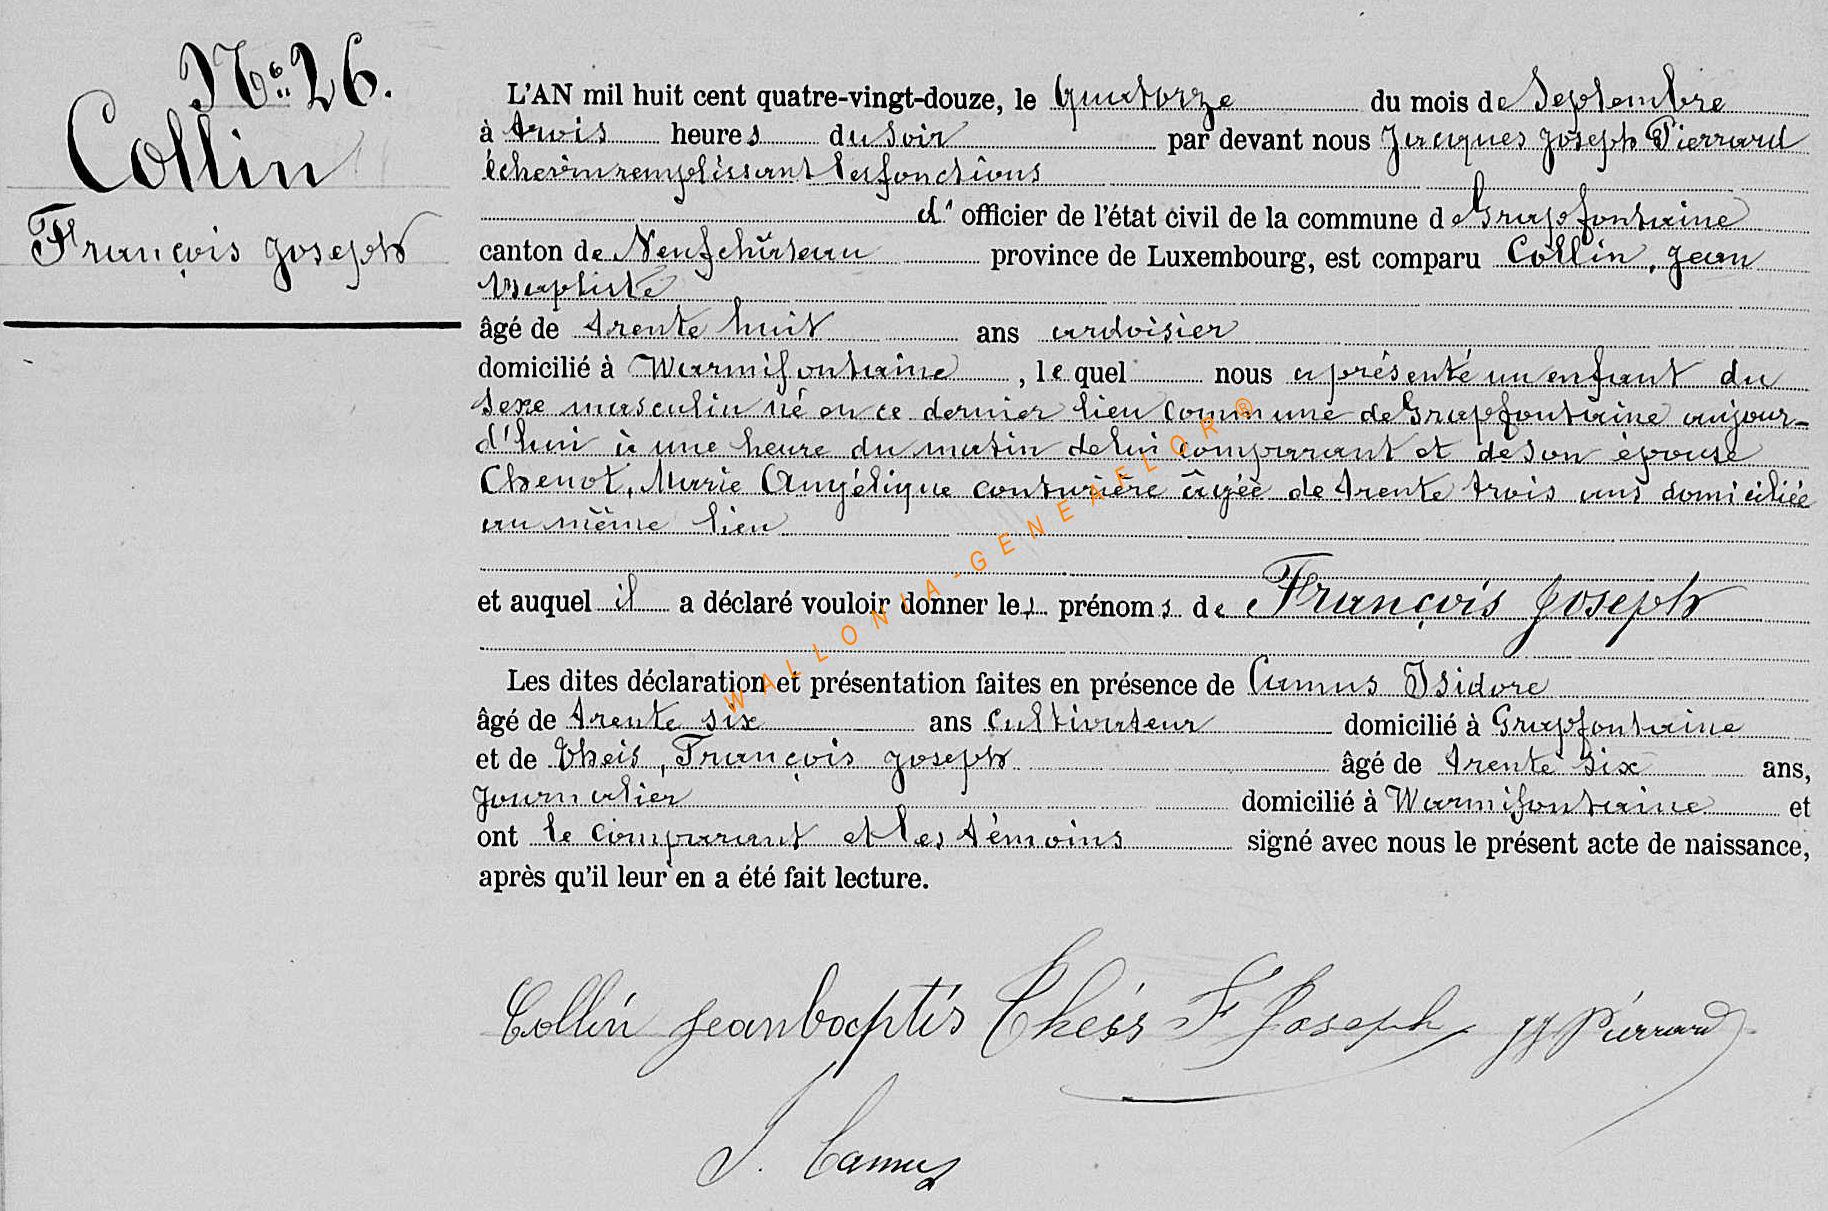 N° 26.
Collin
François Joseph
L'AN mil huit cent quatre-vingt-douze, le quatorze du mois de Septembre
à trois heures du soir par devant nous Jacques Joseph Pierrard
échevin remplissant les fonctions
d' officier de l'état civil de la commune de Grapfontaine
canton de Neufchâteau province de Luxembourg, est comparu Collin, Jean
Baptiste
âgé de trente huit ans ardoisier
domicilié à Warmifontaine, lequel nous a présenté un enfant du
sexe masculin né en ce dernier lieu commune de Grapfontaine aujour-
d'hui à une heure du matin de lui comparant et de son épouse
Chenot, Marie Angélique couturière âgée de trente trois ans domiciliée
au même lieu
et auquel il a déclaré vouloir donner les prénoms de François Joseph
Les dites déclaration et présentation faites en présence de Camus Isidore
âgé de trente six ans cultivateur domicilié à Grapfontaine
et de Theis, François Joseph âgé de trente six ans,
journalier domicilié à Warmifontaine et
ont le comparant et les témoins signé avec nous le présent acte de naissance,
après qu'il leur en a été fait lecture.
Collin jeanbaptis Theis F Joseph JJ Pierrard
I. Camus
WALLONIA-GENEAFLOR ®